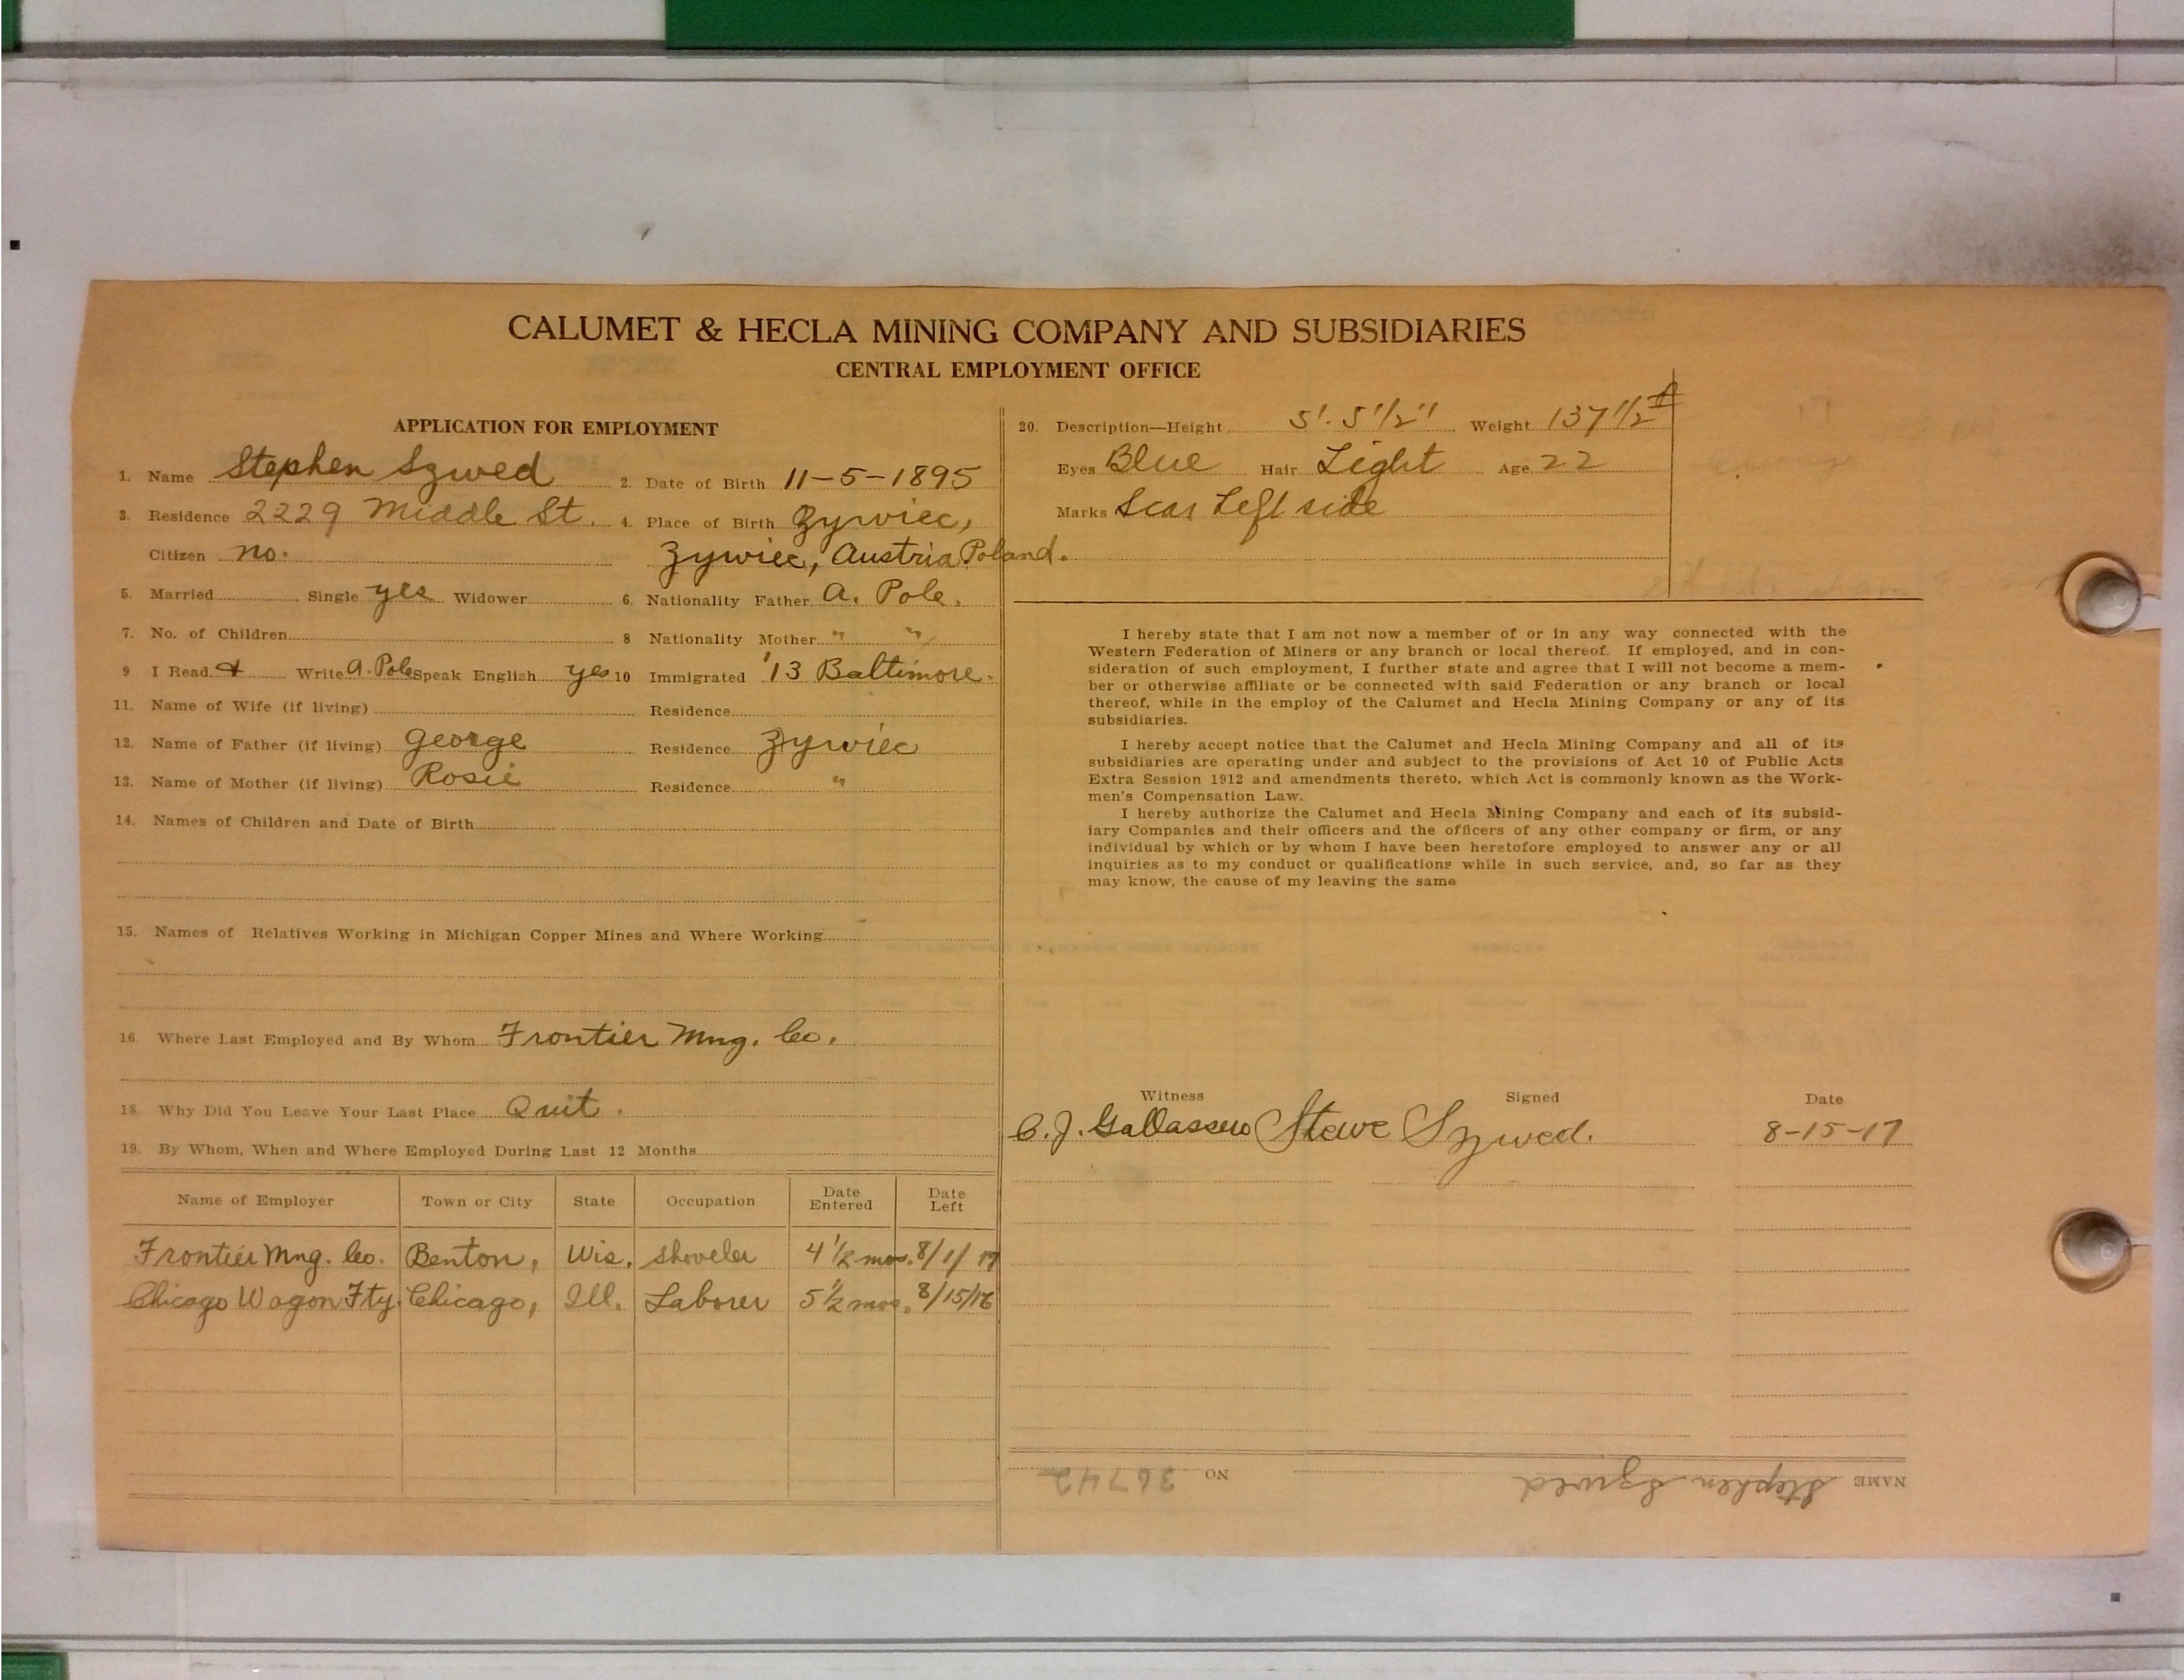 CALUMET & HECLA MINING COMPANY AND SUBSIDIARIES
CENTRAL EMPLOYMENT OFFICE
APPLICATION FOR EMPLOYMENT
1. Name Stephen Szwed 2. Date of Birth 11-5-1895
3. Residence 2229 Middle St. 4. Place of Birth Zywiec,
Citizen no. Zywiec, Austria Poland.
5. Married Single yes Widower 6. Nationality Father A. Pole.
7. No. of Children 8 Nationality Mother " "
9 I Read & Write A. Pole Speak English yes 10 Immigrated '13 Baltimore.
11. Name of Wife (if living) Residence
12. Name of Father (if living) George Residence Zywiec
13. Name of Mother (if living) Rosie Residence "
14. Names of Children and Date of Birth
15. Names of Relatives Working in Michigan Copper Mines and Where Working
16. Where Last Employed and By Whom Frontier Mng. Co.
18. Why Did You Leave Your Last Place Quit.
19. By Whom, When and Where Employed During Last 12 Months
Name of Employer Town or City State Occupation Date Entered Date Left
Frontier Mng. Co. Benton, Wis. Shoveler 4 1/2 mos. 8/1/17
Chicago Wagon Fty. Chicago, Ill. Laborer 5 1/2 mos. 8/15/16
20. Description—Height 5'. 5 1/2" Weight 137 1/2 #
Eyes Blue Hair Light Age 22
Marks Scar Left side
I hereby state that I am not now a member of or in any way connected with the
Western Federation of Miners or any branch or local thereof. If employed, and in con-
sideration of such employment, I further state and agree that I will not become a mem-
ber or otherwise affiliate or be connected with said Federation or any branch or local
thereof, while in the employ of the Calumet and Hecla Mining Company or any of its
subsidiaries.
I hereby accept notice that the Calumet and Hecla Mining Company and all of its
subsidiaries are operating under and subject to the provisions of Act 10 of Public Acts
Extra Session 1912 and amendments thereto, which Act is commonly known as the Work-
men's Compensation Law.
I hereby authorize the Calumet and Hecla Mining Company and each of its subsid-
iary Companies and their officers and the officers of any other company or firm, or any
individual by which or by whom I have been heretofore employed to answer any or all
inquiries as to my conduct or qualifications while in such service, and, so far as they
may know, the cause of my leaving the same
Witness Signed Date
Steve Szwed. 8-15-17
NAME Stephen Szwed NO 36742